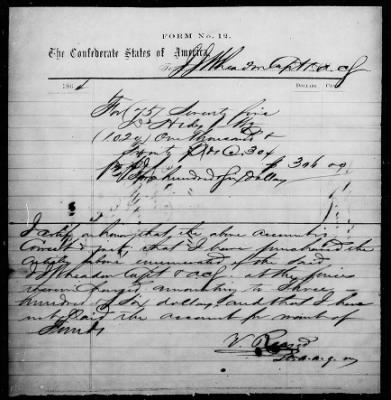 FORM No. 12.
The Confederate States of America,
To
186
DOLLARS. CTS.
For (75) Seventy five
Hides
(1020) One thousand &
Twenty @ 30¢ $ 306 00
Three hundred Six Dollars
I certify on honor that the above account is
correct & just, that I have purchased the
articles above enumerated, of the said
Capt & acs at the prices
therein charged, amounting to Three
hundred & Six dollars, and that I have
not paid the account for want of
funds